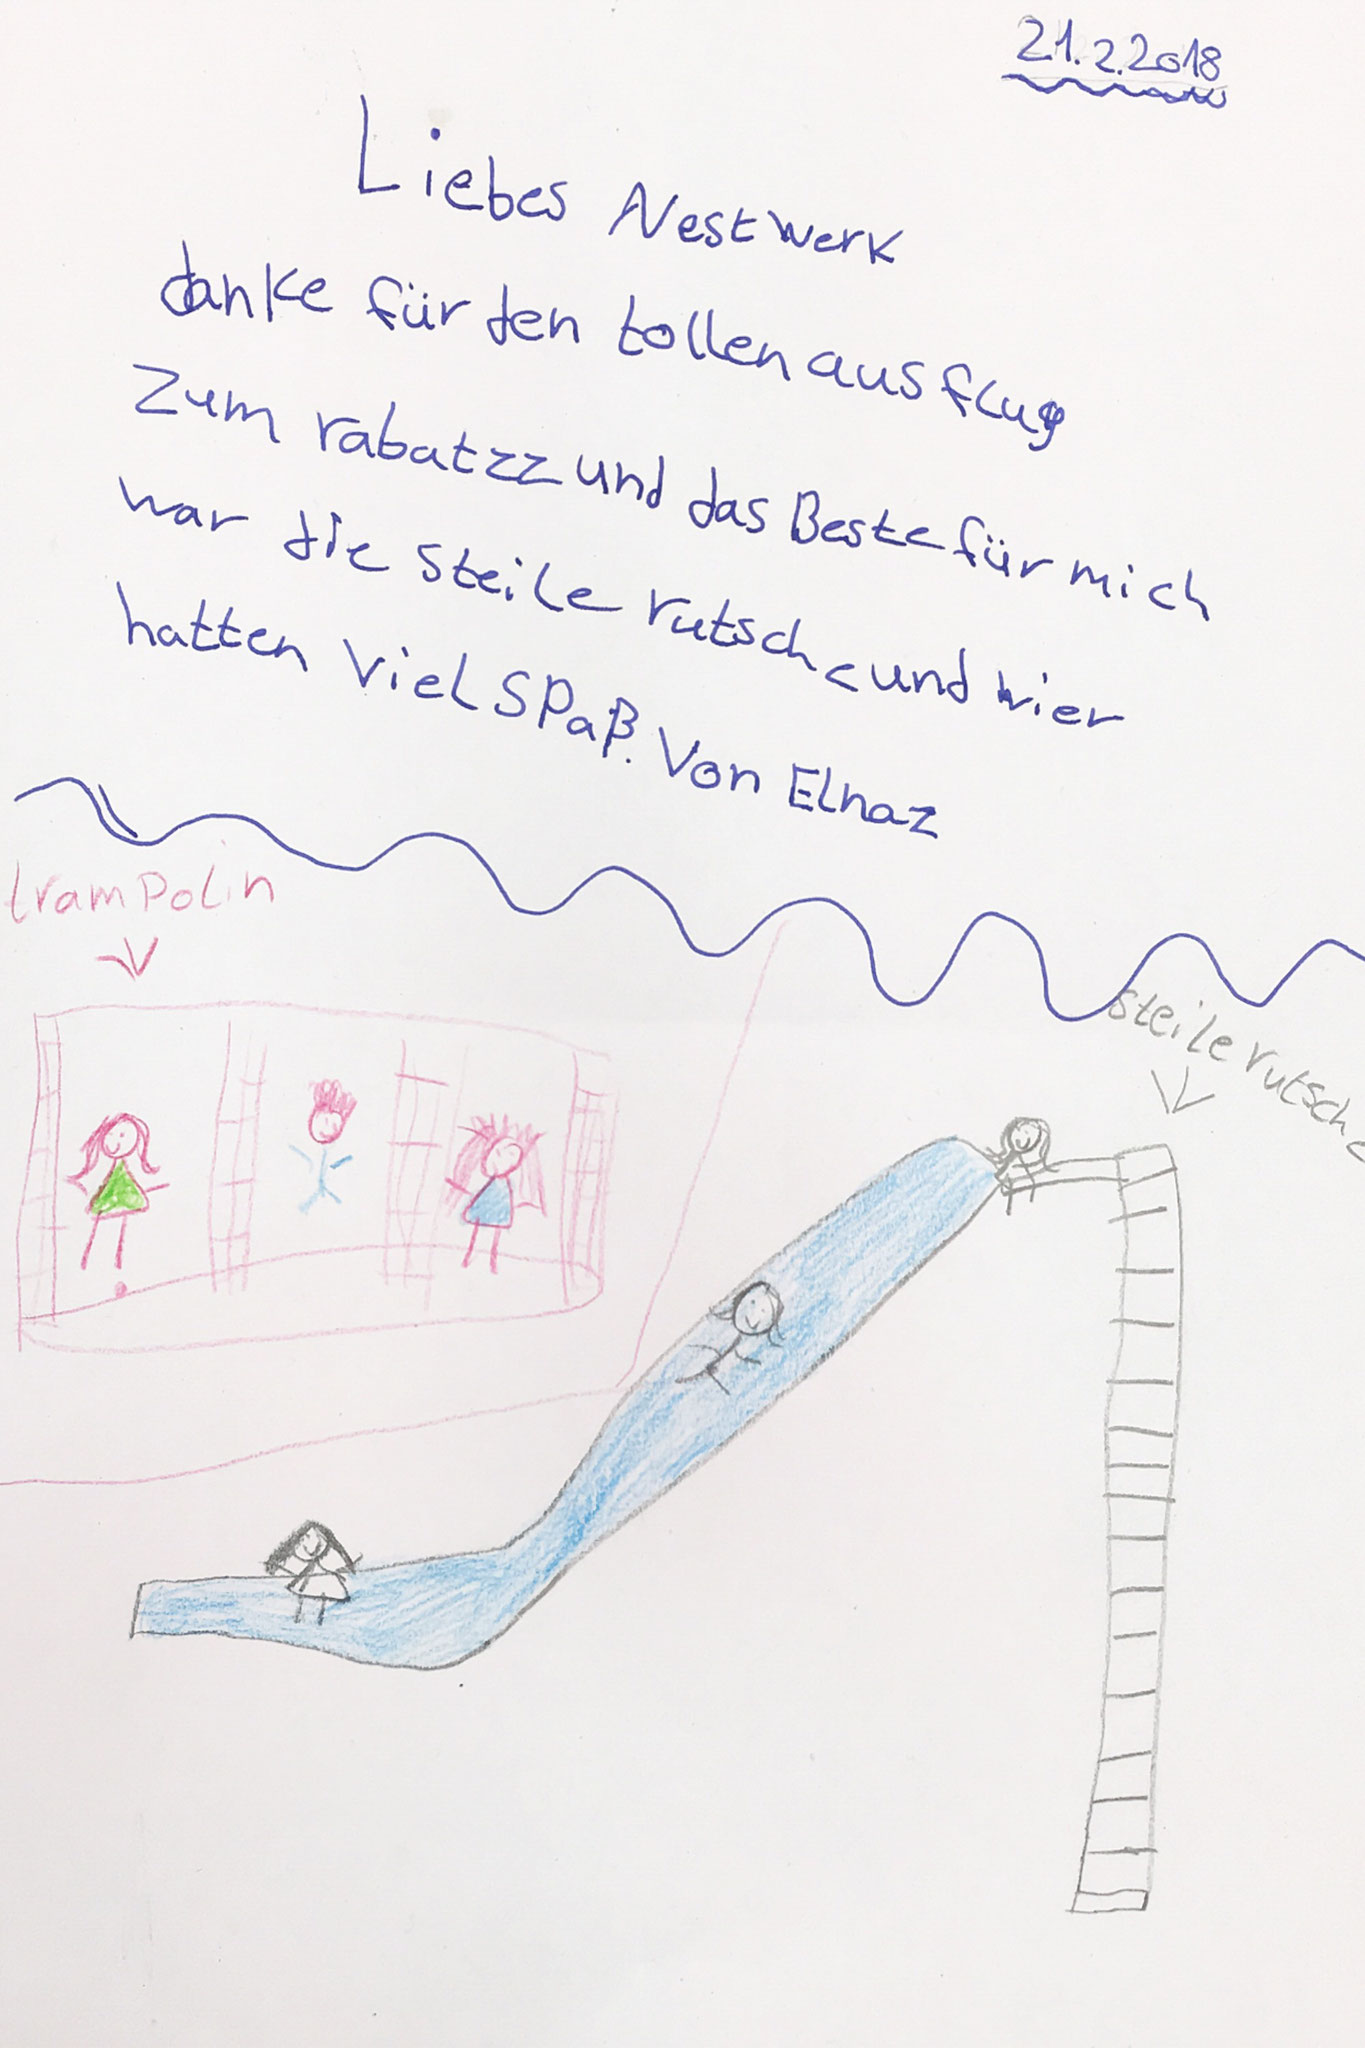 21.2.2018
Liebes Nestwerk
danke für den tollen ausflug
Zum rabatzz und das Beste für mich
war die steile rutsche und wier
hatten viel SPaß. Von Elnaz
tramPolin
steile rutsche